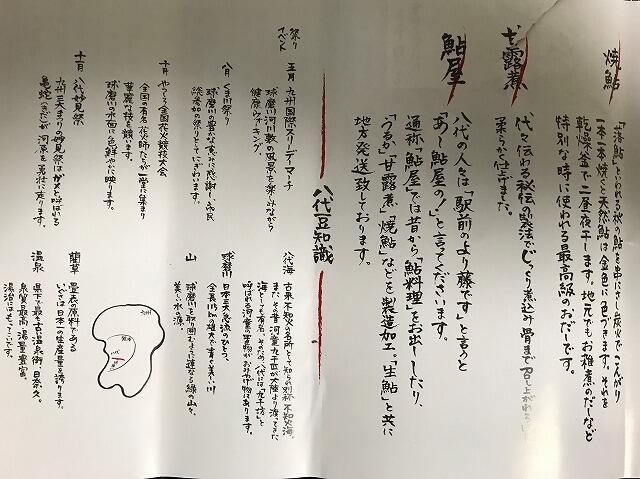 焼鮎
「落鮎」といわれる秋の鮎を串にさし炭火でこんがり
一本一本焼くと天然鮎は金色に色づきます。それを
乾燥釜で二昼夜干します。地元でもお雑煮のだしなど
特別な時に使われる最高級のおだしです。
甘露煮
代々伝わる秘伝の製法でじっくり煮込み骨まで召し上がれる
柔らかく仕上げました。
鮎屋
八代の人々は「駅前のより藤です」と言うと
「あ〜鮎屋の!」と言てくださいます。
通称「鮎屋」では昔から「鮎料理」をお出ししたり、
「うるか」「甘露煮」「焼鮎」などを製造加工。「生鮎」と共に
地方発送致しております。
八代豆知識
祭り
イベント
五月 九州国際スリーデーマーチ
球磨川河川敷の風景を楽しみながら
健康ウォーキング。
八月 くま川祭り
球磨川の豊かな恵みに感謝し、市民
総参加の祭りとしてにぎわいます。
十月 やつしろ全国花火競技大会
全国の有名花火師たちが一堂に集まり
華麗な技を競います。
球磨川の水面に色鮮やかに映ります。
十一月 八代妙見祭
九州三大まつりの妙見祭はガメと呼ばれる
亀蛇(きだ)が河原を勇壮に走ります。
八代海
古来、不知火の名所として知られ別称「不知火海」。
また、その昔河童九千匹が大陸より渡ってきた
海としても有名。そのため、八代には「九千坊」と
いわれる河童の置物がおみやげ物にあります。
球磨川
日本三大急流のひとつ。
全長115kmの雄大で青く美しい川
山
球磨川を取り囲むように連なる緑の山々。
美しい水の源。
九州
熊本
八代
藺草
畳表の原料である
いぐさは日本一の生産量を誇ります。
温泉
県下で最も古い温泉街・日奈久。
泉質最高、湯量豊富。
湯治にもってこいです。